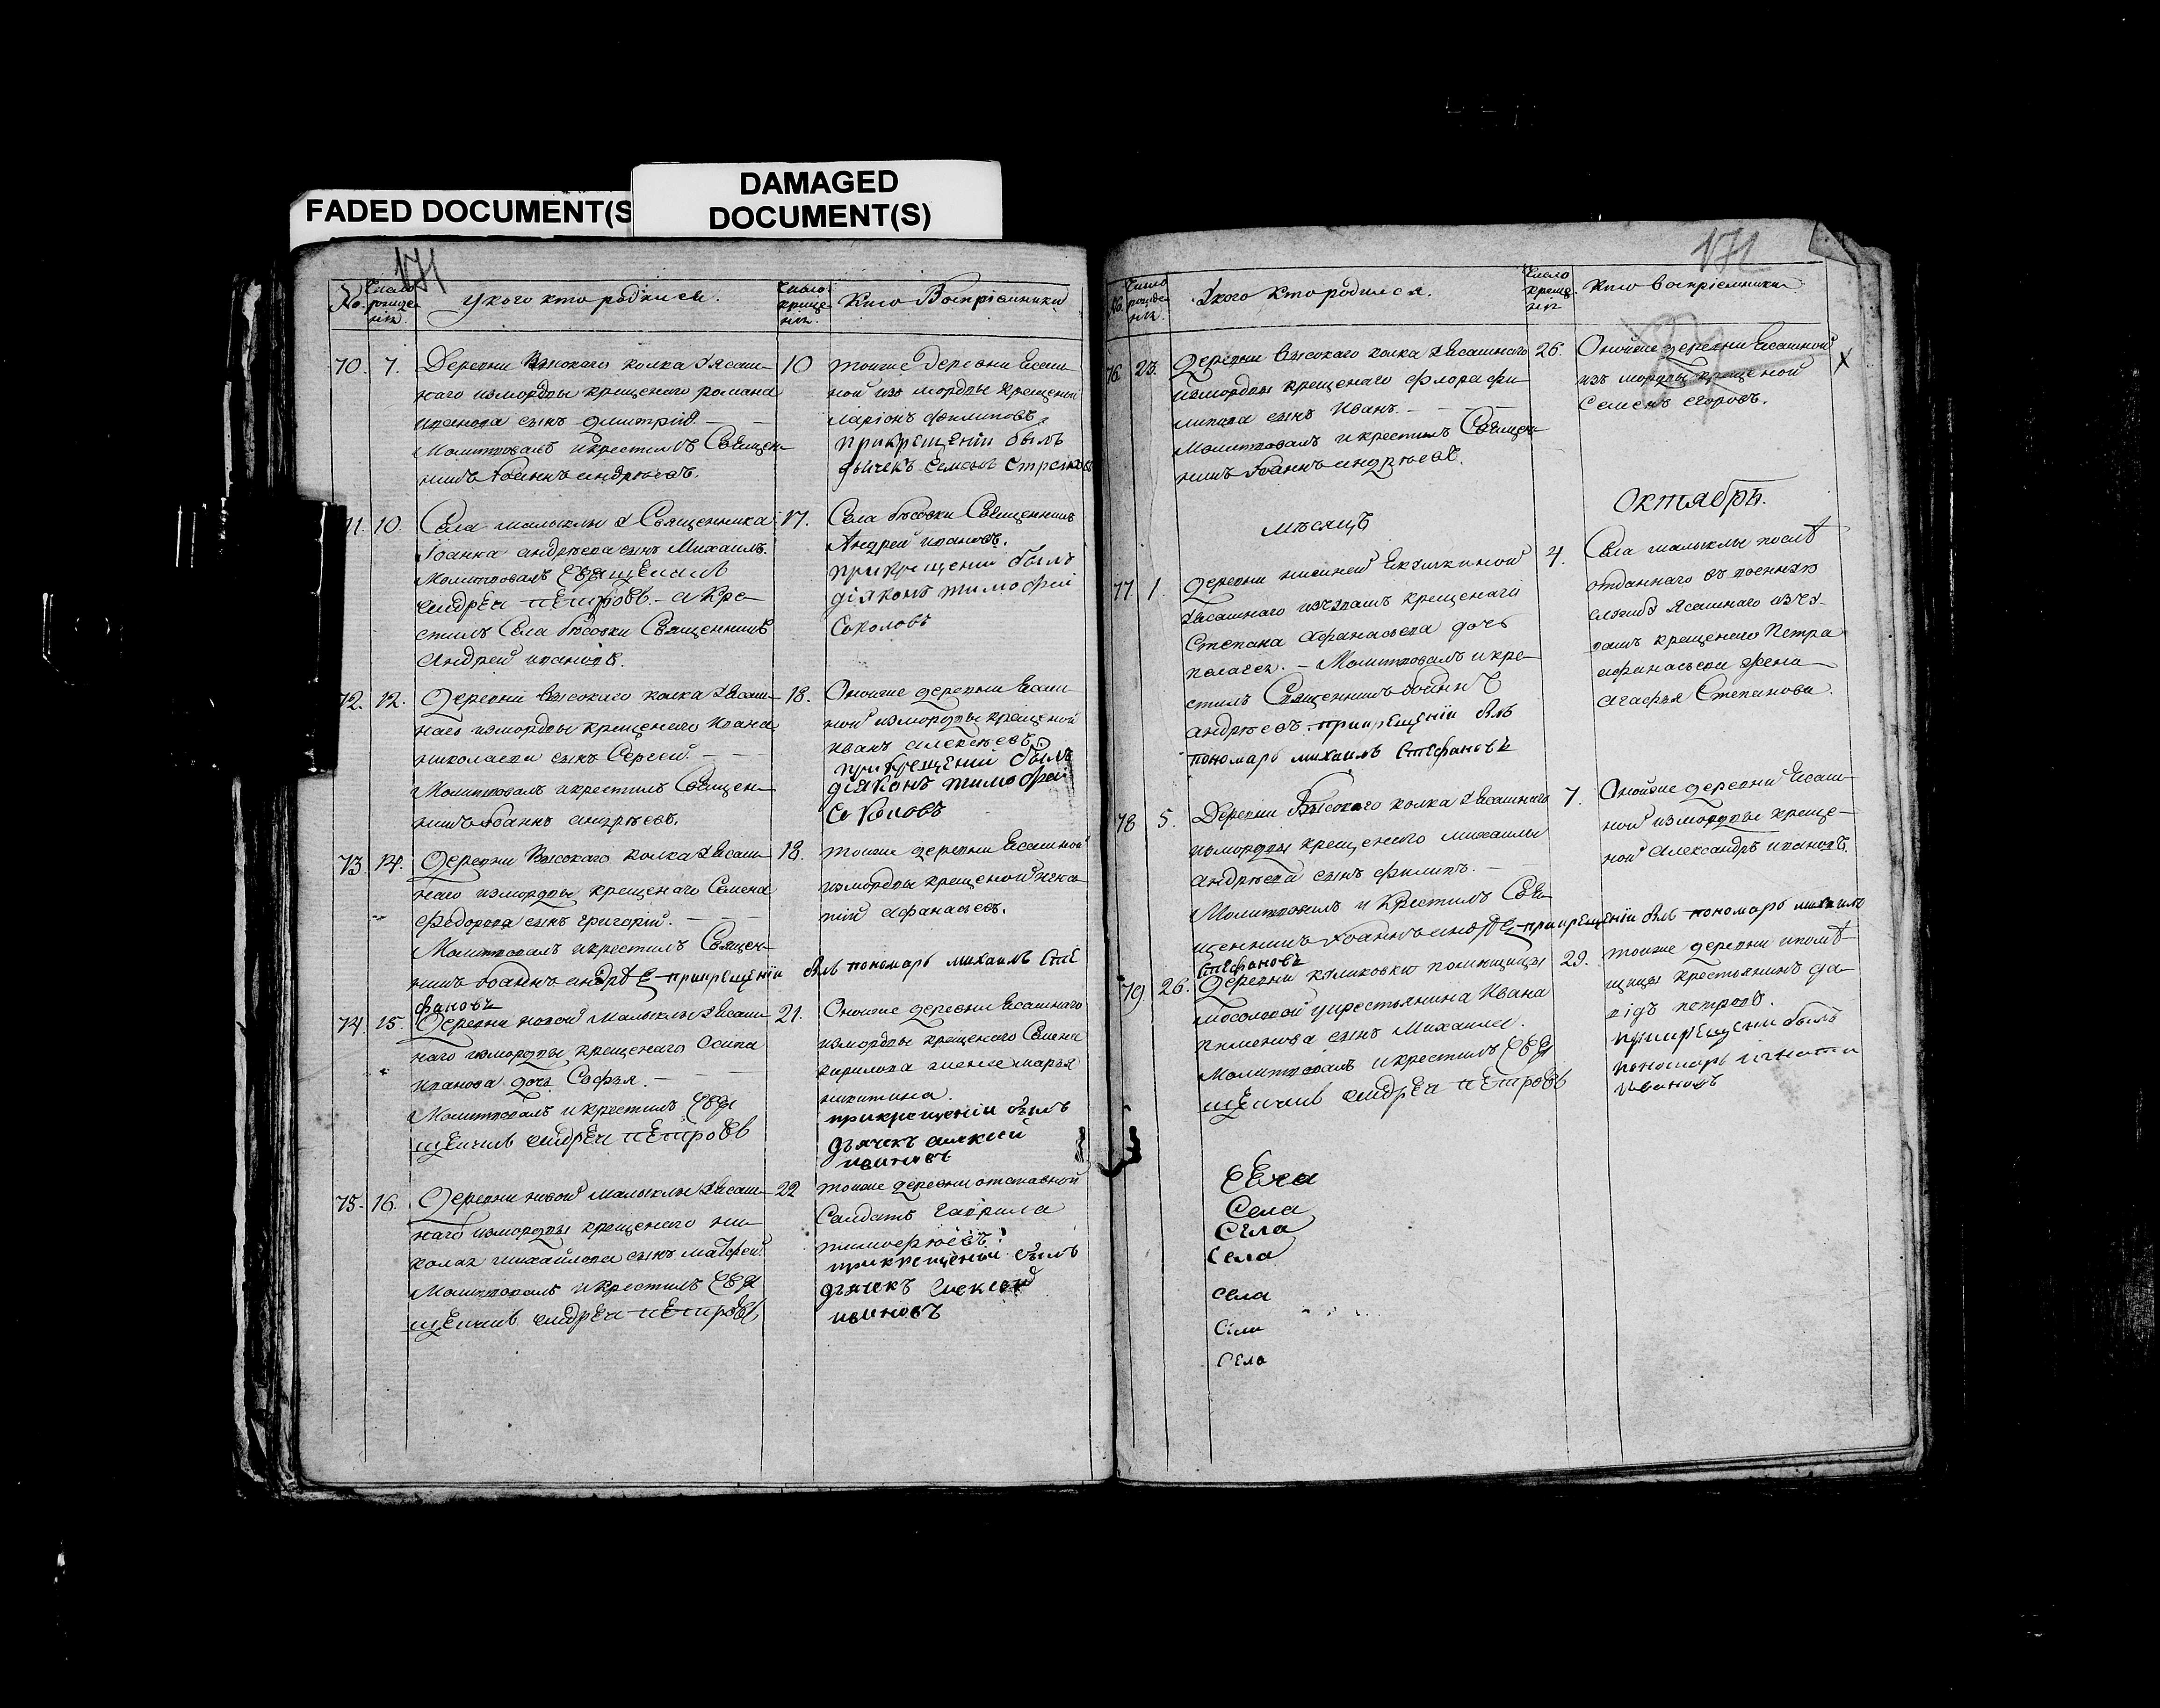 FADED DOCUMENT(S
DAMAGED
DOCUMENT(S)
171
No.
Число рожде-нія.
У кого кто родился.
Число креще-нія.
Кто Воспріемники
70. 7.
Деревни Высокаго колка Ясаш-
наго измордвы крещенаго романа
иванова сынъ Димитрій.
Молитвовалъ икрестилъ Священ-
никъ Іоаннъ андрѣевъ.
10
тоиже деревни Ясаш-
ной изъ мордвы крещеный
ларіонъ филиповъ.
прикрещеніи былъ
дьячекъ Семенъ
71. 10.
Села малыклы У Священника
Іоанна андрѣева сынъ Михаилъ.
Молитвовалъ Священникъ
андрей петровъ. а кре-
стилъ Села бѣсовки Священникъ
Андрей ивановъ.
17.
Села бѣсовки Священникъ
Андрей ивановъ.
прикрещеніи былъ
діяконъ тимофей
Соколовъ
72. 12.
Деревни высокаго колка Ясаш-
наго измордвы крещенаго Ивана
николаева сынъ Сергей.
Молитвовалъ икрестилъ Священ-
никъ Іоаннъ андрѣевъ.
18.
Оноиже деревни Ясаш-
ной измордвы крещеной
иванъ алексѣевъ.
прикрещеніи былъ
діяконъ тимофей
Соколовъ
73. 14.
Деревни Высокаго колка Ясаш-
наго измордвы крещенаго Семена
Федорова сынъ григорій.
Молитвовалъ икрестилъ Священ-
никъ Іоаннъ андрѣе прикрещеніи былъ пономарь михаилъ Сте
фановъ
18.
тоиже деревни Ясашной
измордвы крещеной игна-
тій афанасьевъ.
74. 15.
Деревни новой Малыклы Ясаш-
наго измордвы крещенаго Осипа
иванова дочь Софья.
Молитвовалъ икрестилъ Свя
щенникъ андрей петровъ
21.
Оноиже деревни Ясашнаго
измордвы крещенаго Семена
кирилова жена марья
никитина.
прикрещеніи былъ
дьячекъ алексей
ивановъ
75. 16.
Деревни новой малыклы Ясаш-
наго измордвы крещенаго ни-
колая михайлова сынъ матфей.
Молитвовалъ икрестилъ Свя
щенникъ андрей петровъ
22
тоиже деревни отставной
Салдатъ гаврила
тимофеевъ.
прикрещеніи былъ
дьячекъ алексей
ивановъ
172
Число рожде-нія.
У кого кто родился.
Число креще-нія
Кто воспріемники.
76. 23.
Деревни высокаго колка Ясашнаго
измордвы крещенаго флора фи-
липова сынъ Иванъ.
Молитвовалъ икрестилъ Священ-
никъ Іоаннъ андрѣевъ.
26.
Оноиже деревни Ясашной
изъ мордвы крещеной
Семенъ егоровъ.
X
мѣсяцъ
Октябрь.
77 1.
Деревни нижней
Ясашнаго изчувашъ крещенаго
Степана афанасьева дочь
пелагея. Молитвовалъ икре-
стилъ Священникъ Іоаннъ
андрѣевъ. прикрещеніи былъ
пономарь михаилъ Стефановъ
4.
Села малыклы послѣ
отданнаго въ военную
службу Ясашнаго изчу-
вашъ крещенаго Петра
афанасьева жена
агафья Степанова.
78 5.
Деревни Высокаго колка Ясашнаго
измордвы крещенаго михаилы
андрѣева сынъ филипъ.
Молитвовалъ и крестилъ Свя-
щенникъ Іоаннъ андрѣе прикрещеніи былъ пономарь михаилъ
Стефановъ
7.
Оноиже деревни Ясаш-
ной измордвы креще-
ной Александръ ивановъ.
79. 26.
Деревни куликовки помѣщицы
мосоловой укрестьянина Ивана
пименова сынъ Михаилъ.
Молитвовалъ икрестилъ Свя
щенникъ андрей петровъ
29.
тоиже деревни помѣ-
щицы крестьянинъ да-
видъ петровъ.
прикрещени былъ
пономарь игнати
ивановъ
Села
Села
Села
Села
Села
Села
Села